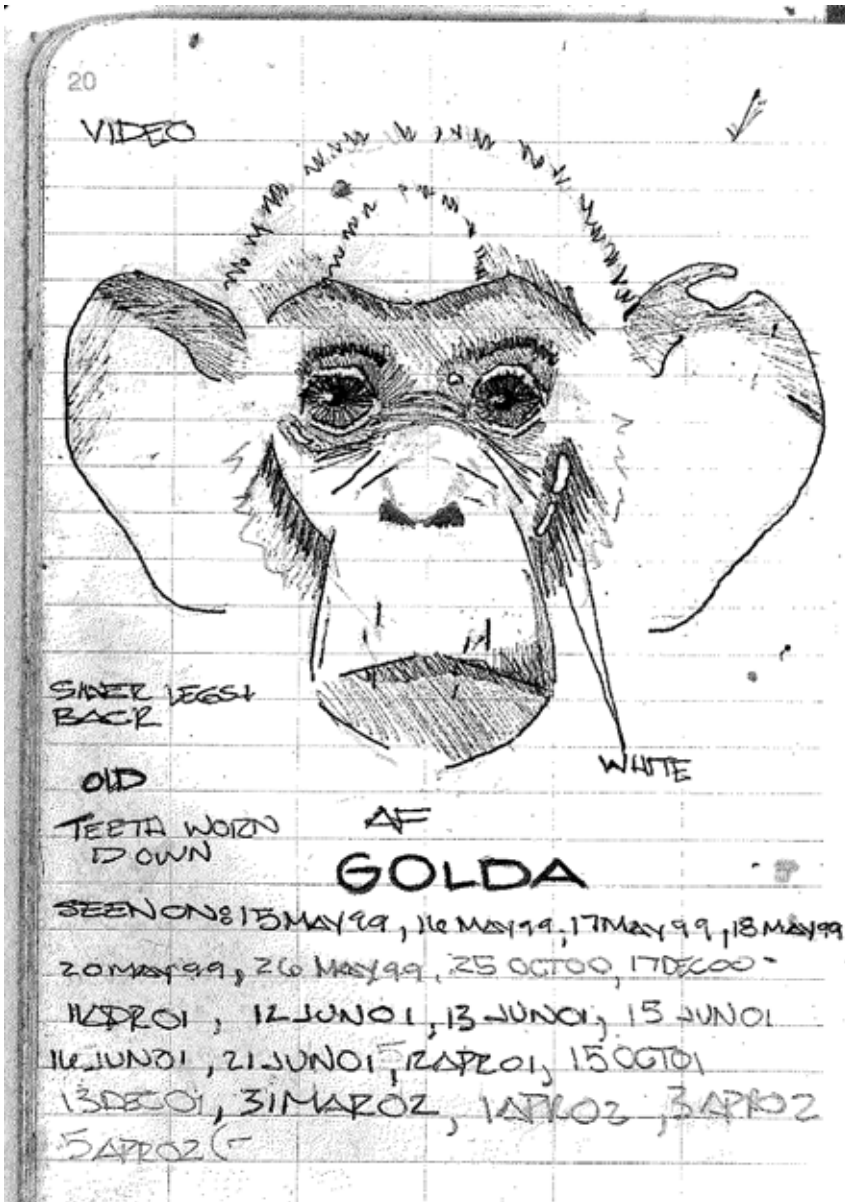 20
VIDEO
SILVER LEGS +
BACK
WHITE
OLD
TEETH WORN
DOWN
AF
GOLDA
SEEN ON: 15 MAY 99, 16 MAY 99, 17 MAY 99, 18 MAY 99
20 MAY 99, 26 MAY 99, 25 OCT 00, 17 DEC 00
APR 01, 12 JUN 01, 13 JUN 01, 15 JUN 01
16 JUN 01, 21 JUN 01, 12 APR 01, 15 OCT 01
13 DEC 01, 31 MAR 02, 1 APR 02, 3 APR 02
5 APR 02